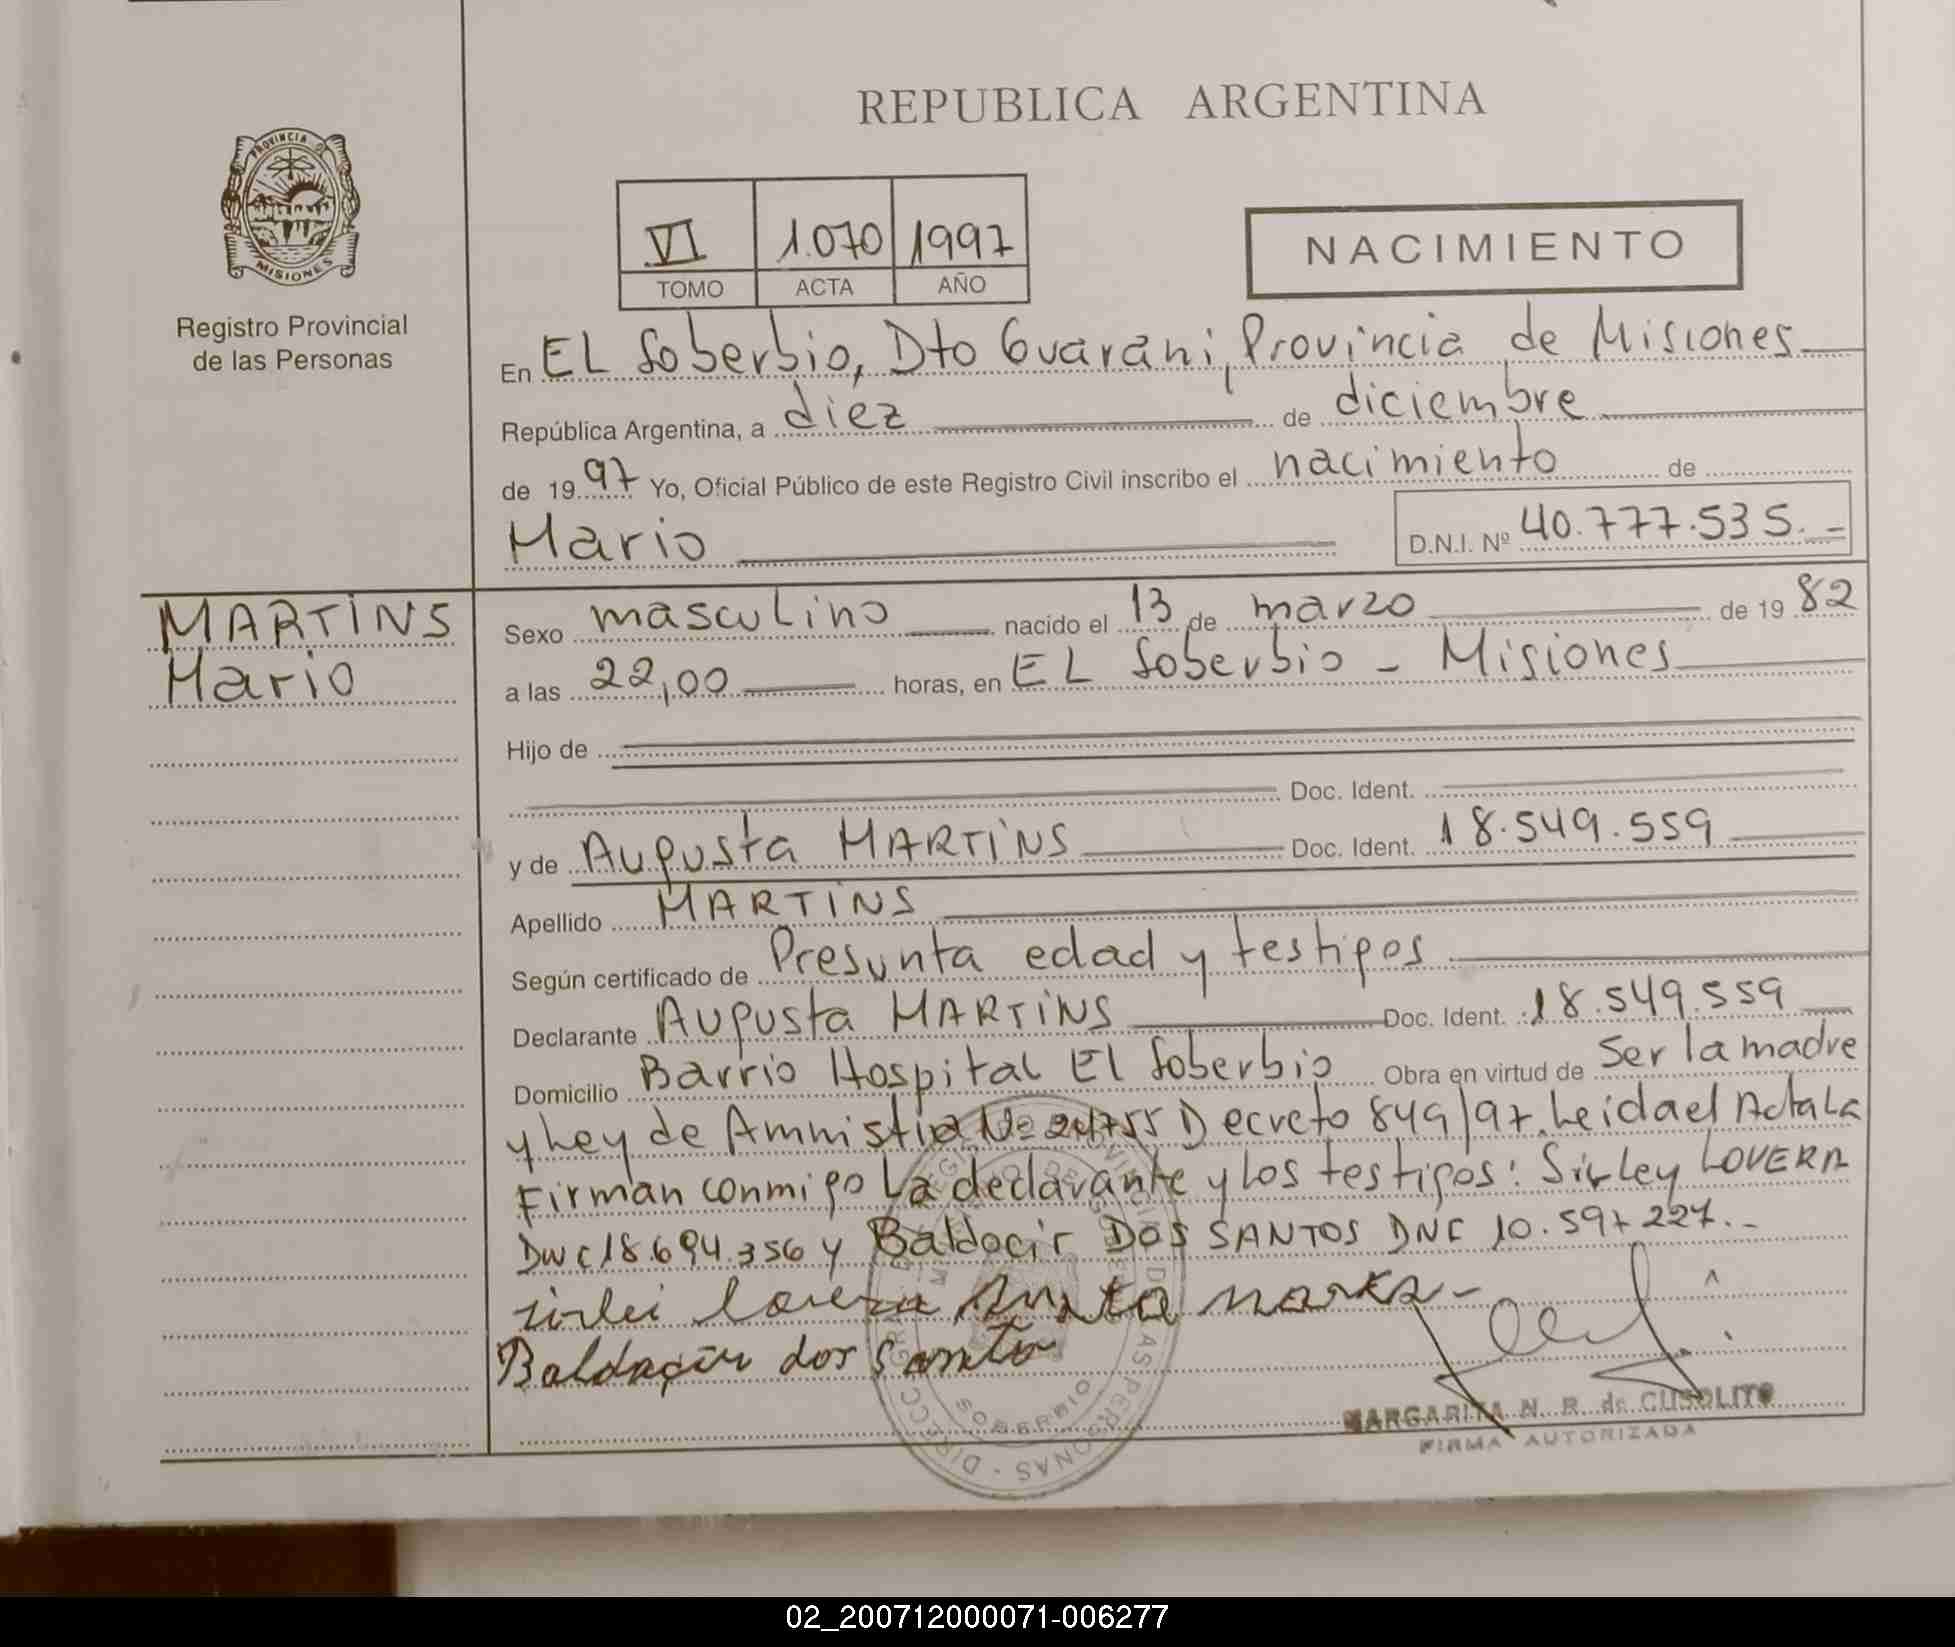 REPUBLICA ARGENTINA
PROVINCIA DE
MISIONES
Registro Provincial
de las Personas
VI 1.070 1997
TOMO ACTA AÑO
NACIMIENTO
En EL Soberbio, Dto Guarani, Provincia de Misiones
República Argentina, a diez de diciembre
de 1997 Yo, Oficial Público de este Registro Civil inscribo el nacimiento de
Mario D.N.I. Nº 40.777.535.=
MARTINS
Mario
Sexo masculino nacido el 13 de marzo de 1982
a las 22,00 horas, en EL Soberbio - Misiones
Hijo de
Doc. Ident.
y de Augusta MARTINS Doc. Ident. 18.549.559
Apellido MARTINS
Según certificado de Presunta edad y testigos
Declarante Augusta MARTINS Doc. Ident. 18.549.559
Domicilio Barrio Hospital El Soberbio Obra en virtud de Ser la madre
y Ley de Amnistia Nº 24755 Decreto 849/97. Leida el Acta La
Firman conmigo La declarante y los testigos: Sirley LOVERA
DNI 18.694.356 y Baldocir DOS SANTOS DNI 10.597227.-
sirlei lovera
Baldaçir dos Santo
MARGARITA N. R. de CUSOLITO
FIRMA AUTORIZADA
SOBERBIO
02_200712000071-006277